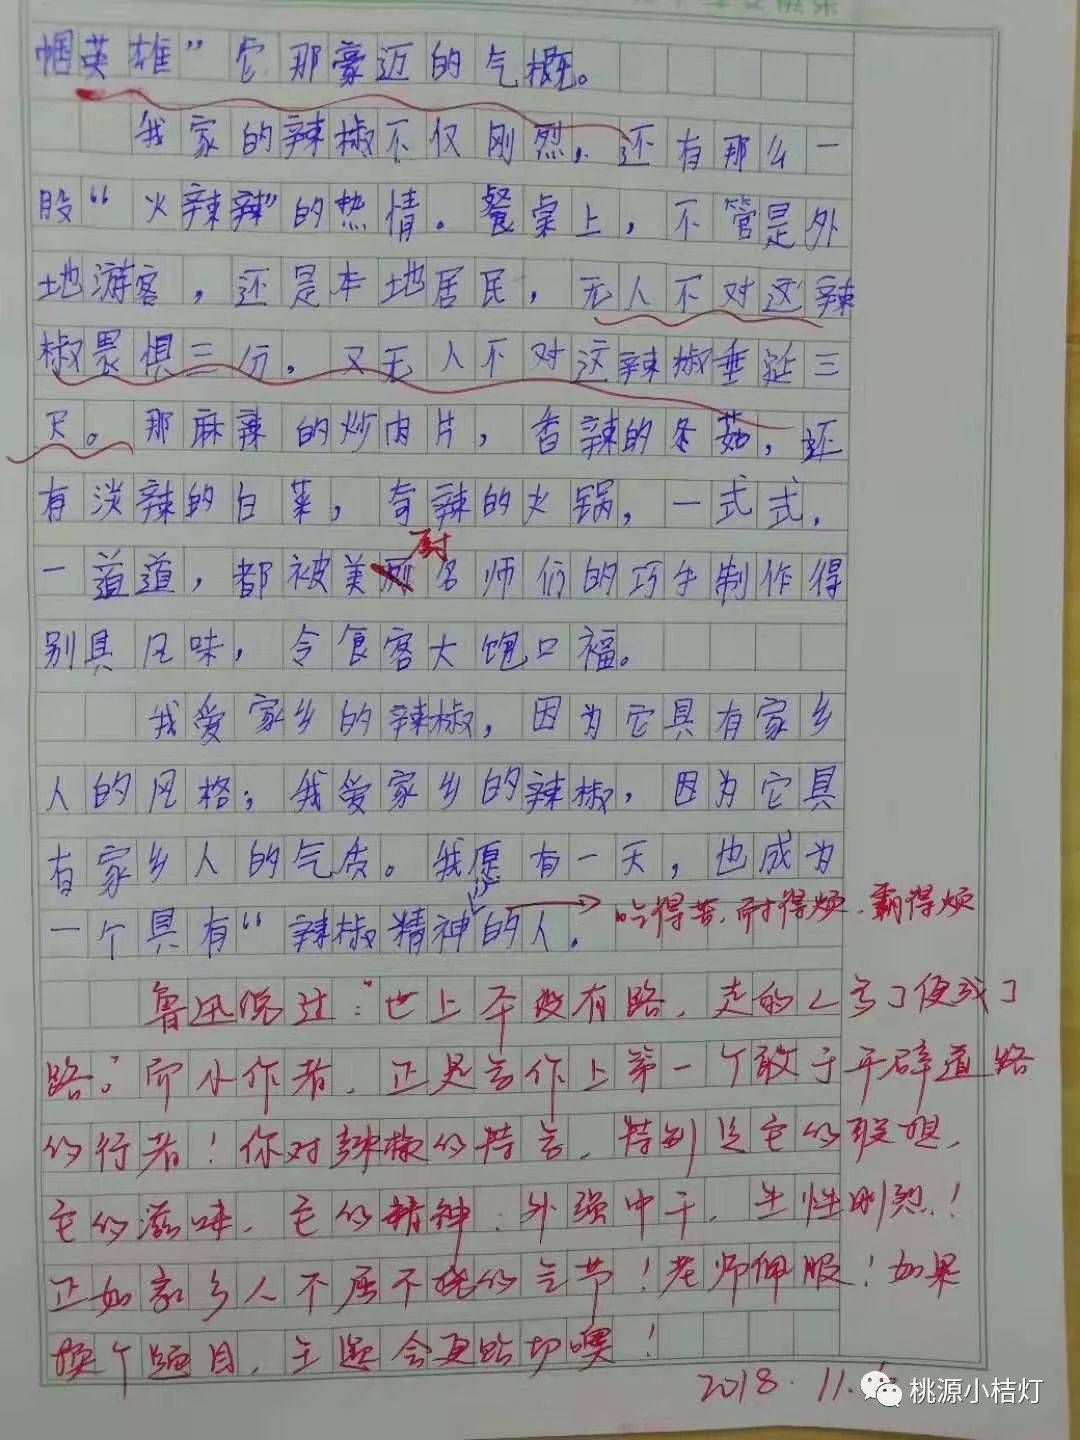 帼英雄”它那豪迈的气概。
我家的辣椒不仅刚烈，还有那么一
股“火辣辣”的热情。餐桌上，不管是外
地游客，还是本地居民，无人不对这辣
椒畏惧三分，又无人不对这辣椒垂涎三
尺。那麻辣的炒肉片，香辣的冬菇，还
有淡辣的白菜，奇辣的火锅，一式式，
厨
一道道，都被美名师们的巧手制作得
别具风味，令食客大饱口福。
我爱家乡的辣椒，因为它具有家乡
人的风格；我爱家乡的辣椒，因为它具
有家乡人的气质。我愿有一天，也成为
一个具有“辣椒精神的人。
吃得苦，耐得烦，霸得烦
鲁迅说过：“世上本没有路，走的人多了便成了
路。”而小作者，正是写作上第一个敢于开辟道路
的行者！你对辣椒的特写，特别是它的联想，
它的滋味，它的精神，外强中干，生性刚烈！
正如家乡人不屈不挠的气节！老师佩服！如果
换个题目，主题会更贴切噢！
2018.11.
桃源小桔灯